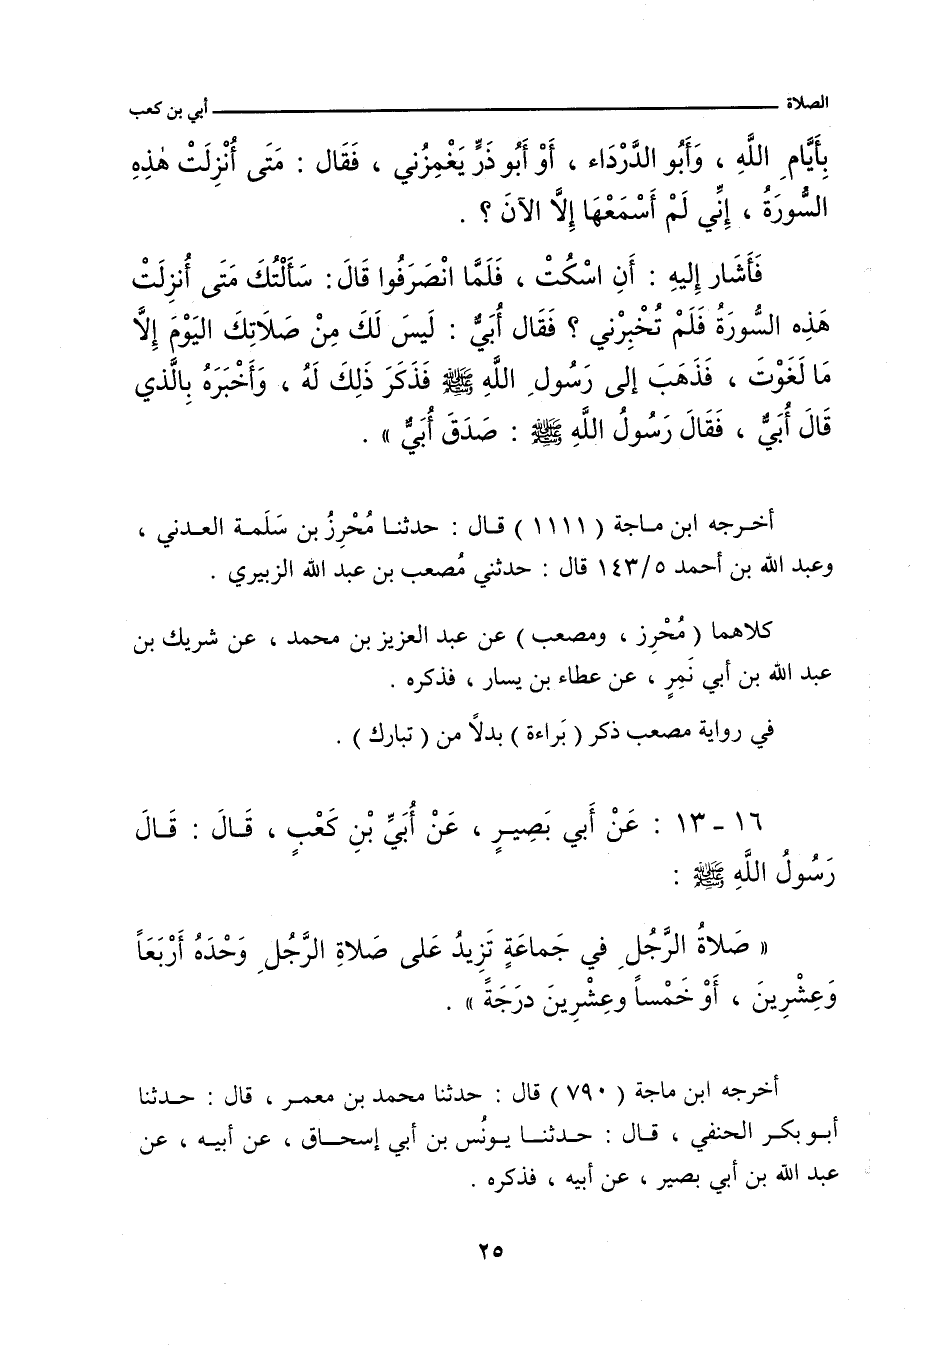 الصلاة أبي بن كعب
بِأَيَّامِ اللَّهِ ، وَأَبُو الدَّرْدَاء ، أَوْ أَبُو ذَرٍّ يَغْمِزُني ، فَقَال : مَتَى أُنْزِلَتْ هٰذِهِ
السُّورَةُ ، إِنِّي لَمْ أَسْمَعْهَا إِلَّا الآنَ ؟ .
فَأَشَار إِليهِ : أَنِ اسْكُتْ ، فَلَمَّا انْصَرَفُوا قَالَ : سَأَلْتُكَ مَتَى أُنزِلَتْ
هَذِه السُّورَةُ فَلَمْ تُخْبِرْني ؟ فَقَال أُبَيٌّ : لَيسَ لَكَ مِنْ صَلَاتِكَ اليَوْمَ إِلَّا
مَا لَغَوْتَ ، فَذَهَبَ إلى رَسُولِ اللَّهِ ﷺ فَذَكَرَ ذَلِكَ لَهُ ، وَأَخْبَرَهُ بِالَّذي
قَالَ أُبَيٌّ ، فَقَالَ رَسُولُ اللَّهِ ﷺ : صَدَقَ أُبَيٌّ » .
أخرجه ابن ماجة ( ١١١١ ) قال : حدثنا مُحْرِزُ بن سَلَمة العدني ،
وعبد الله بن أحمد ١٤٣/٥ قال : حدثني مُصعب بن عبد الله الزبيري .
كلاهما ( مُحْرِز ، ومصعب ) عن عبد العزيز بن محمد ، عن شريك بن
عبد الله بن أبي نَمِرٍ ، عن عطاء بن يسار ، فذكره .
في رواية مصعب ذكر ( بَراءة ) بدلًا من ( تبارك ) .
١٦ - ١٣ : عَنْ أَبي بَصِيرٍ ، عَنْ أُبَيِّ بْنِ كَعْبٍ ، قَالَ : قَالَ
رَسُولُ اللَّهِ ﷺ :
« صَلاةُ الرَّجُلِ في جَماعَةٍ تَزِيدُ عَلى صَلاةِ الرَّجُلِ وَحْدَهُ أَرْبَعَاً
وَعِشْرِينَ ، أَوْ خَمْساً وعِشْرِينَ درَجَةً » .
أخرجه ابن ماجة ( ٧٩٠ ) قال : حدثنا محمد بن معمر ، قال : حدثنا
أبو بكر الحنفي ، قال : حدثنا يونُس بن أبي إسحاق ، عن أبيه ، عن
عبد الله بن أبي بصير ، عن أبيه ، فذكره .
٢٥